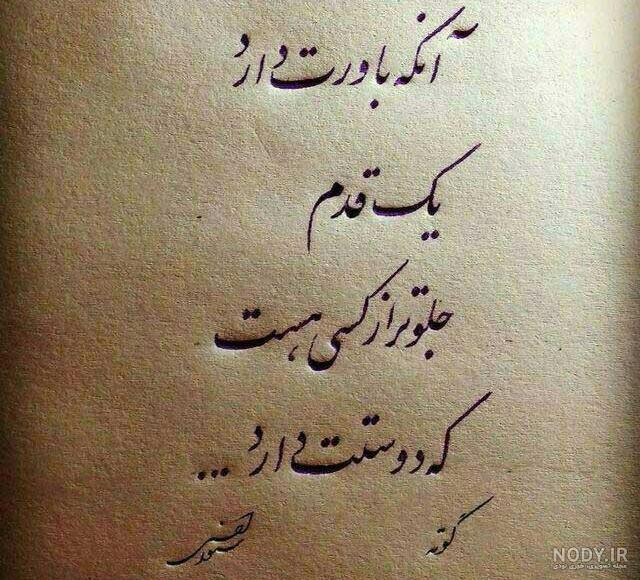 آنکه باورت دارد
یک قدم
جلوتر از کسی هست
که دوستت دارد...
گوته
NODY.IR